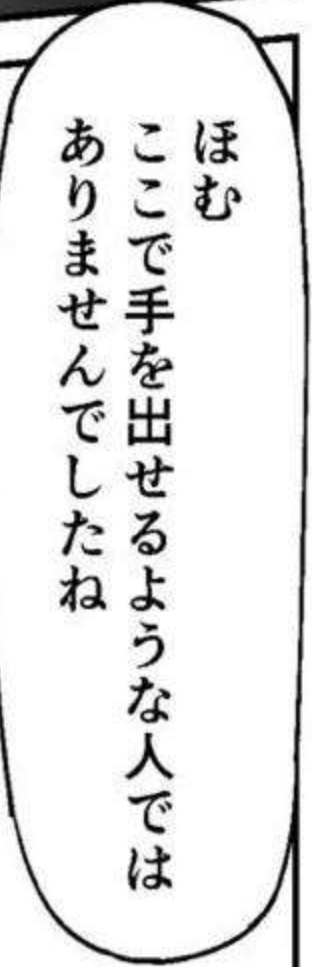 ほむ
ここで手を出せるような人では
ありませんでしたね